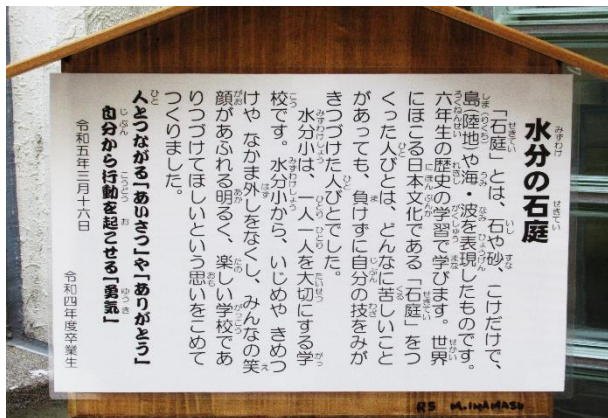 水分の石庭
「石庭」とは、石や砂、こけだけで、
島（陸地）や海・波を表現したものです。
六年生の歴史の学習で学びます。世界
にほこる日本文化である「石庭」をつ
くった人びとは、どんなに苦しいこと
があっても、負けずに自分の技をみが
きつづけた人びとでした。
水分小は、一人一人を大切にする学
校です。水分小から、いじめや きめつ
けや なかま外しをなくし、みんなの笑
顔があふれる明るく、楽しい学校であ
りつづけてほしいという思いをこめて
つくりました。
人とつながる「あいさつ」や「ありがとう」
自分から行動を起こせる「勇気」
令和五年三月十六日
令和四年度卒業生
R5 M.INAMASU